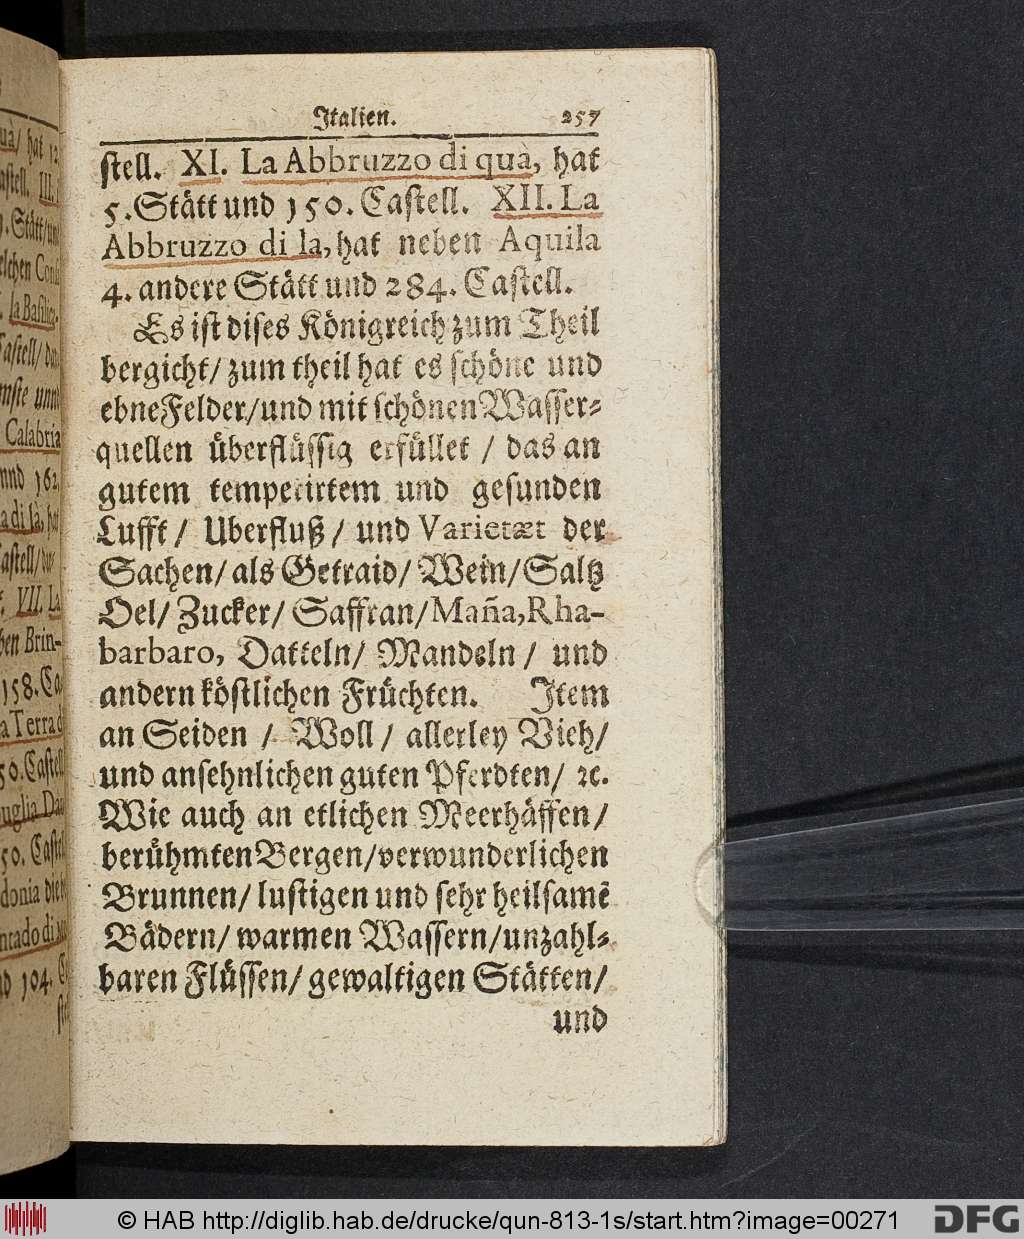 Italien. 257
stell. XI. La Abbruzzo di quà, hat
5. Stätt und 150. Castell. XII. La
Abbruzzo di la, hat neben Aquila
4. andere Stätt und 284. Castell.
Es ist dises Königreich zum Theil
bergicht/ zum theil hat es schöne und
ebne Felder/ und mit schönen Wasser⸗
quellen überflüssig erfüllet / das an
gutem temperirtem und gesunden
Lufft / Uberfluß / und Varietæt der
Sachen/ als Getraid/ Wein/ Saltz
Oel/ Zucker/ Saffran/ Mañа, Rha-
barbaro, Datteln/ Mandeln / und
andern köstlichen Früchten. Item
an Seiden / Woll / allerley Vieh/
und ansehnlichen guten Pferdten/ ꝛc.
Wie auch an etlichen Meerhäffen/
berühmten Bergen/ verwunderlichen
Brunnen/ lustigen und sehr heilsamẽ
Bädern/ warmen Wassern/ unzahl⸗
baren Flüssen/ gewaltigen Stätten/
und
© HAB http://diglib.hab.de/drucke/qun-813-1s/start.htm?image=00271
DFG